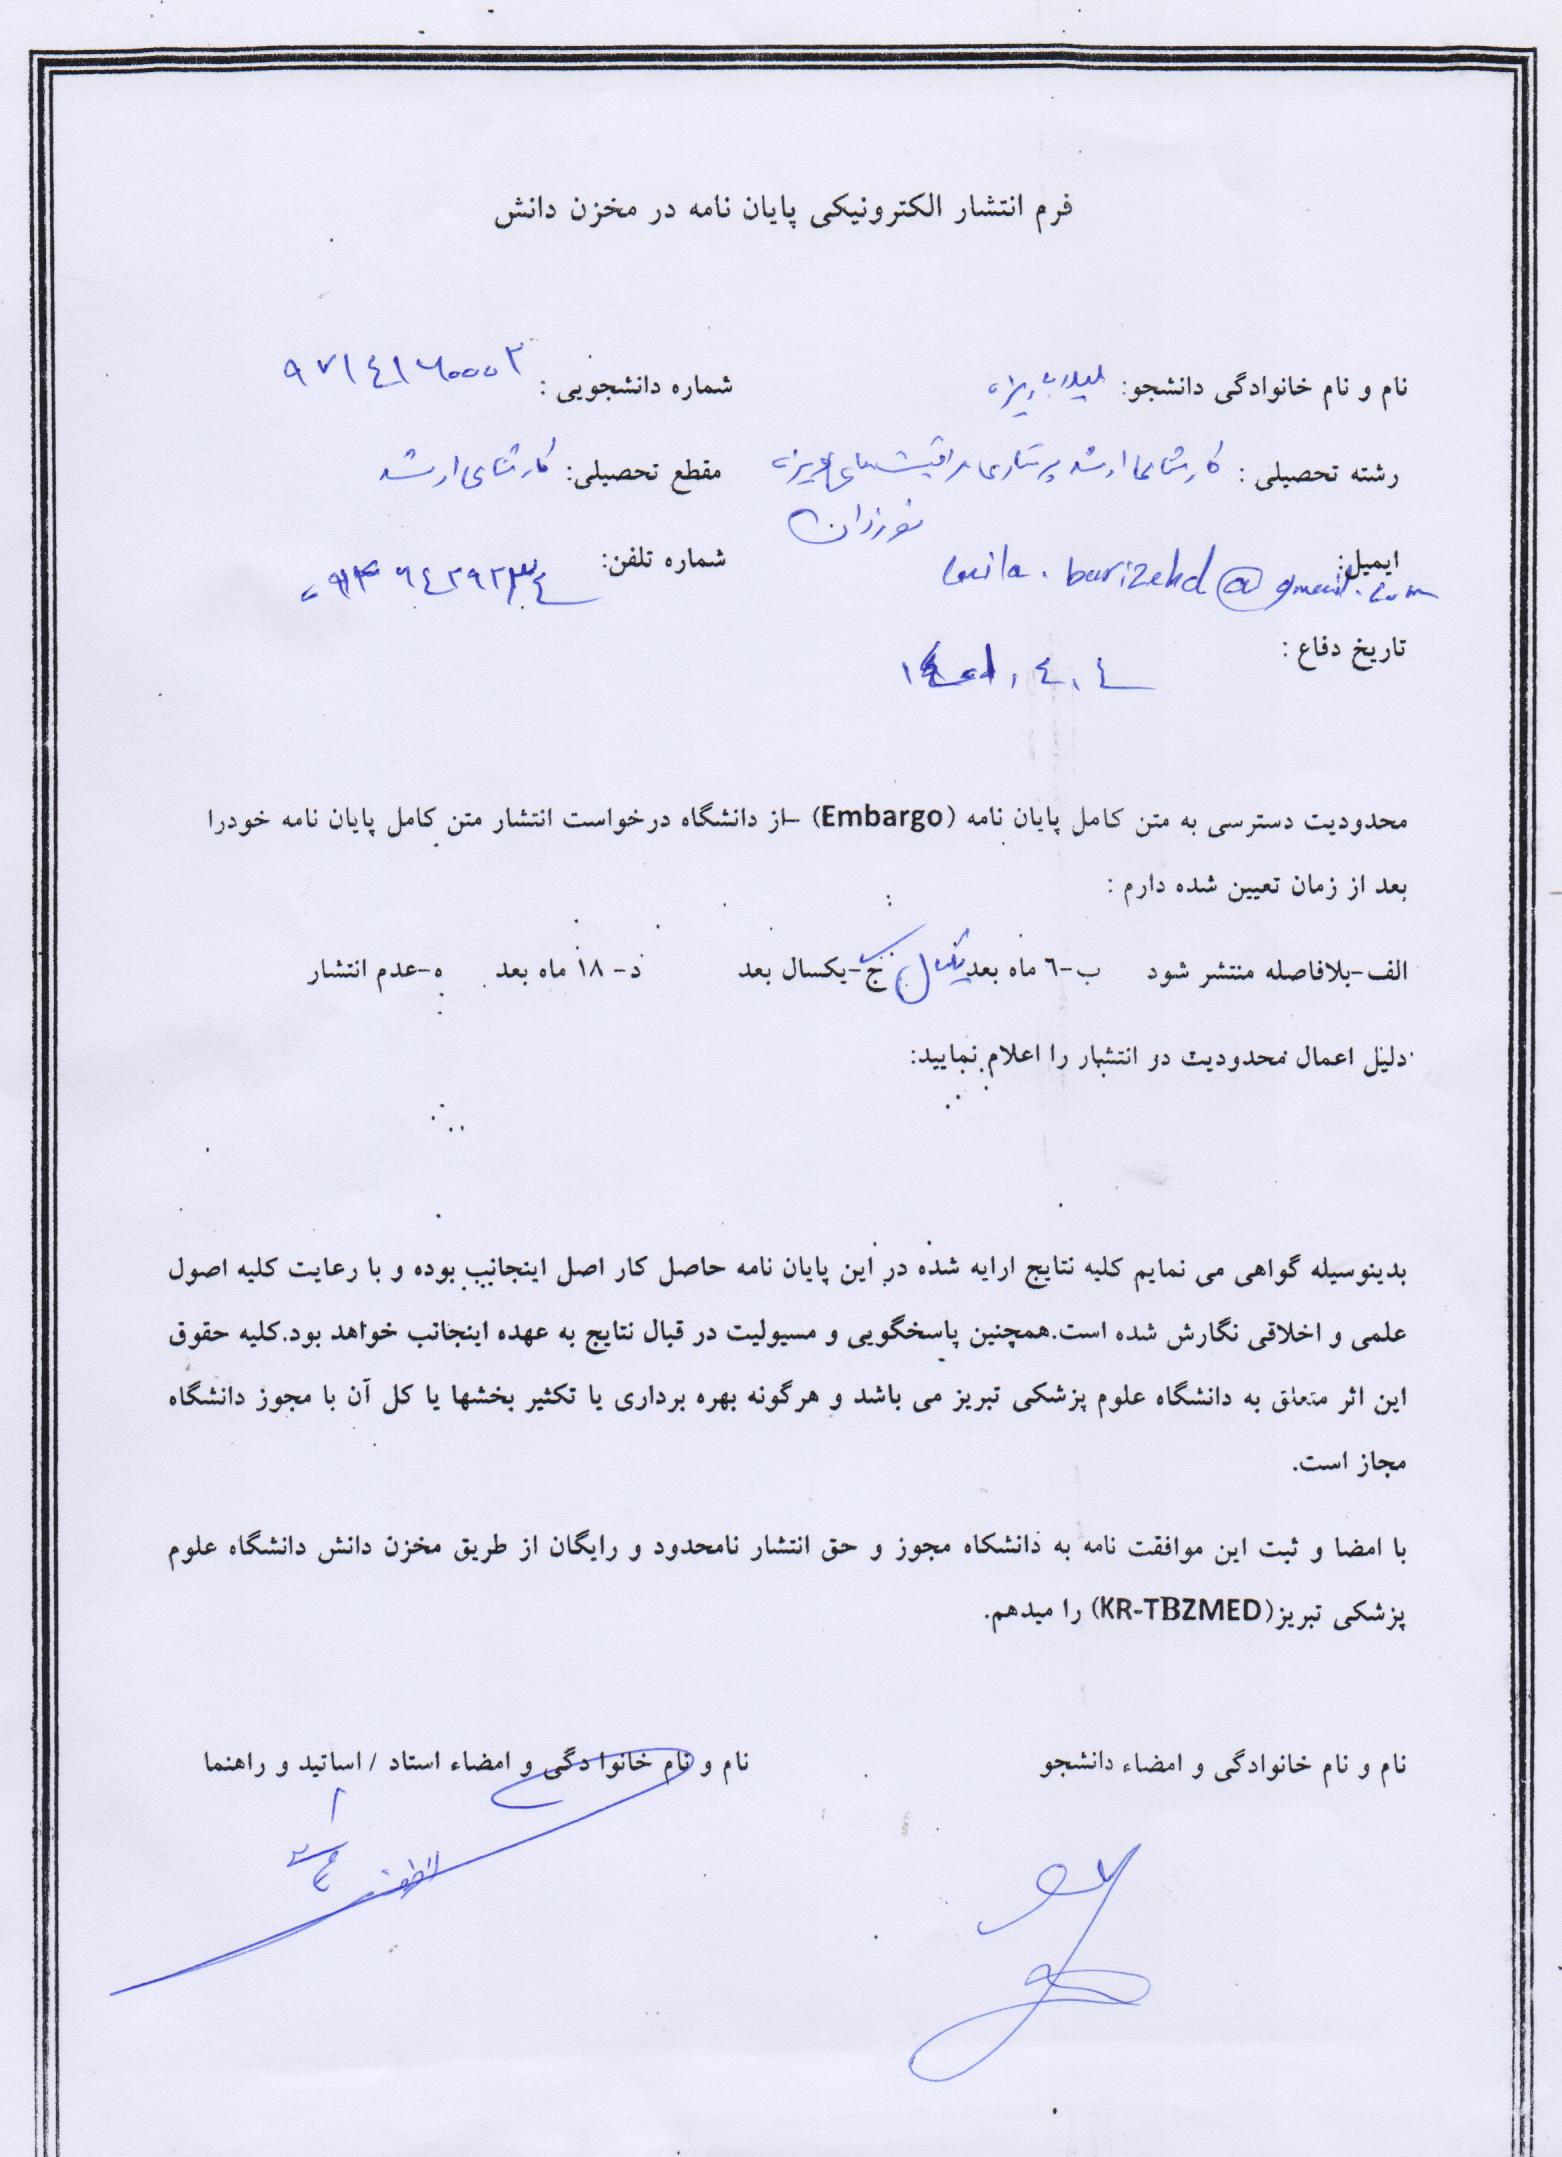 فرم انتشار الکترونیکی پایان نامه در مخزن دانش
نام و نام خانوادگی دانشجو: شماره دانشجویی :
رشته تحصیلی : کارشناسی ارشد پرستاری مراقبت های ویژه مقطع تحصیلی: کارشناسی ارشد
نوزادان
ایمیل: شماره تلفن:
تاریخ دفاع :
محدودیت دسترسی به متن کامل پایان نامه (Embargo) –از دانشگاه درخواست انتشار متن کامل پایان نامه خودرا
بعد از زمان تعیین شده دارم :
الف-بلافاصله منتشر شود ب-٦ ماه بعد یکسال ج-یکسال بعد د- ١٨ ماه بعد ه-عدم انتشار
دلیل اعمال محدودیت در انتشار را اعلام نمایید:
بدینوسیله گواهی می نمایم کلیه نتایج ارایه شده در این پایان نامه حاصل کار اصل اینجانب بوده و با رعایت کلیه اصول
علمی و اخلاقی نگارش شده است.همچنین پاسخگویی و مسیولیت در قبال نتایج به عهده اینجانب خواهد بود.کلیه حقوق
این اثر متعلق به دانشگاه علوم پزشکی تبریز می باشد و هرگونه بهره برداری یا تکثیر بخشها یا کل آن با مجوز دانشگاه
مجاز است.
با امضا و ثبت این موافقت نامه به دانشگاه مجوز و حق انتشار نامحدود و رایگان از طریق مخزن دانش دانشگاه علوم
پزشکی تبریز(KR-TBZMED) را میدهم.
نام و نام خانوادگی و امضاء دانشجو نام و نام خانوادگی و امضاء استاد / اساتید و راهنما